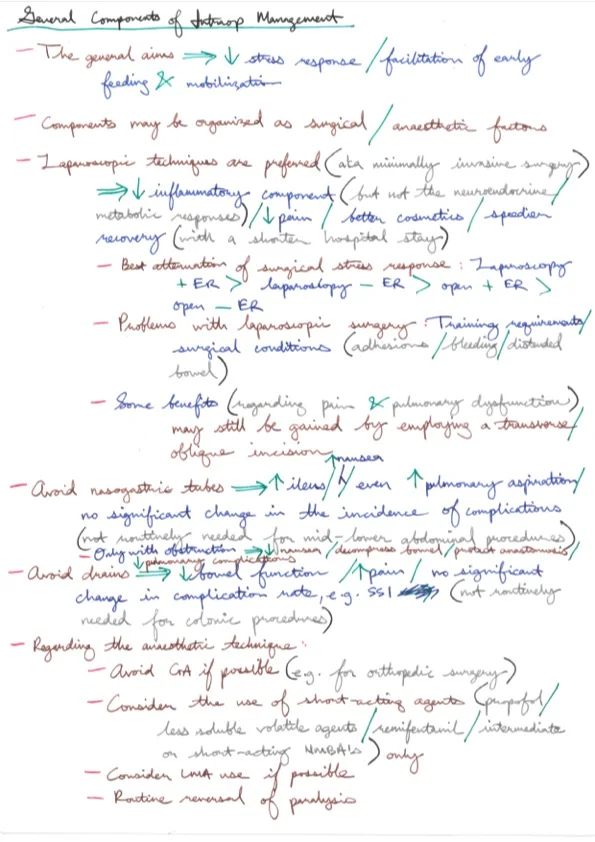 General Components of Intraop Management
– The general aims ⇒ ↓ stress response / facilitation of early
feeding & mobilization
– Components may be organized as surgical / anaesthetic factors
– Laparoscopic techniques are preferred (aka minimally invasive surgery)
⇒ ↓ inflammatory component (but not the neuroendocrine/
metabolic responses) / ↓ pain / better cosmetics / speedier
recovery (with a shorter hospital stay)
– Best attenuation of surgical stress response : Laparoscopy
+ ER > laparoscopy – ER > open + ER >
open – ER
– Problems with laparoscopic surgery : Training requirements/
surgical conditions (adhesions / bleeding / distended
bowel)
– Some benefits (regarding pain & pulmonary dysfunction)
may still be gained by employing a transverse/
oblique incision
– Avoid nasogastric tubes ⇒ ↑ ileus / ↑ nausea / even ↑ pulmonary aspiration/
no significant change in the incidence of complications
(not routinely needed for mid-lower abdominal procedures)
– Only with obstruction ⇒ ↓ nausea / decompress bowel / protect anastomosis /
↓ pulmonary complications
– Avoid drains ⇒ ↓ bowel function / ↑ pain / no significant
change in complication rate, e.g. SSI (not routinely
needed for colonic procedures)
– Regarding the anaesthetic technique :
– Avoid GA if possible (e.g. for orthopedic surgery)
– Consider the use of short-acting agents (propofol/
less soluble volatile agents / remifentanil / intermediate
or short-acting NMBA's) only
– Consider LMA use if possible
– Routine reversal of paralysis